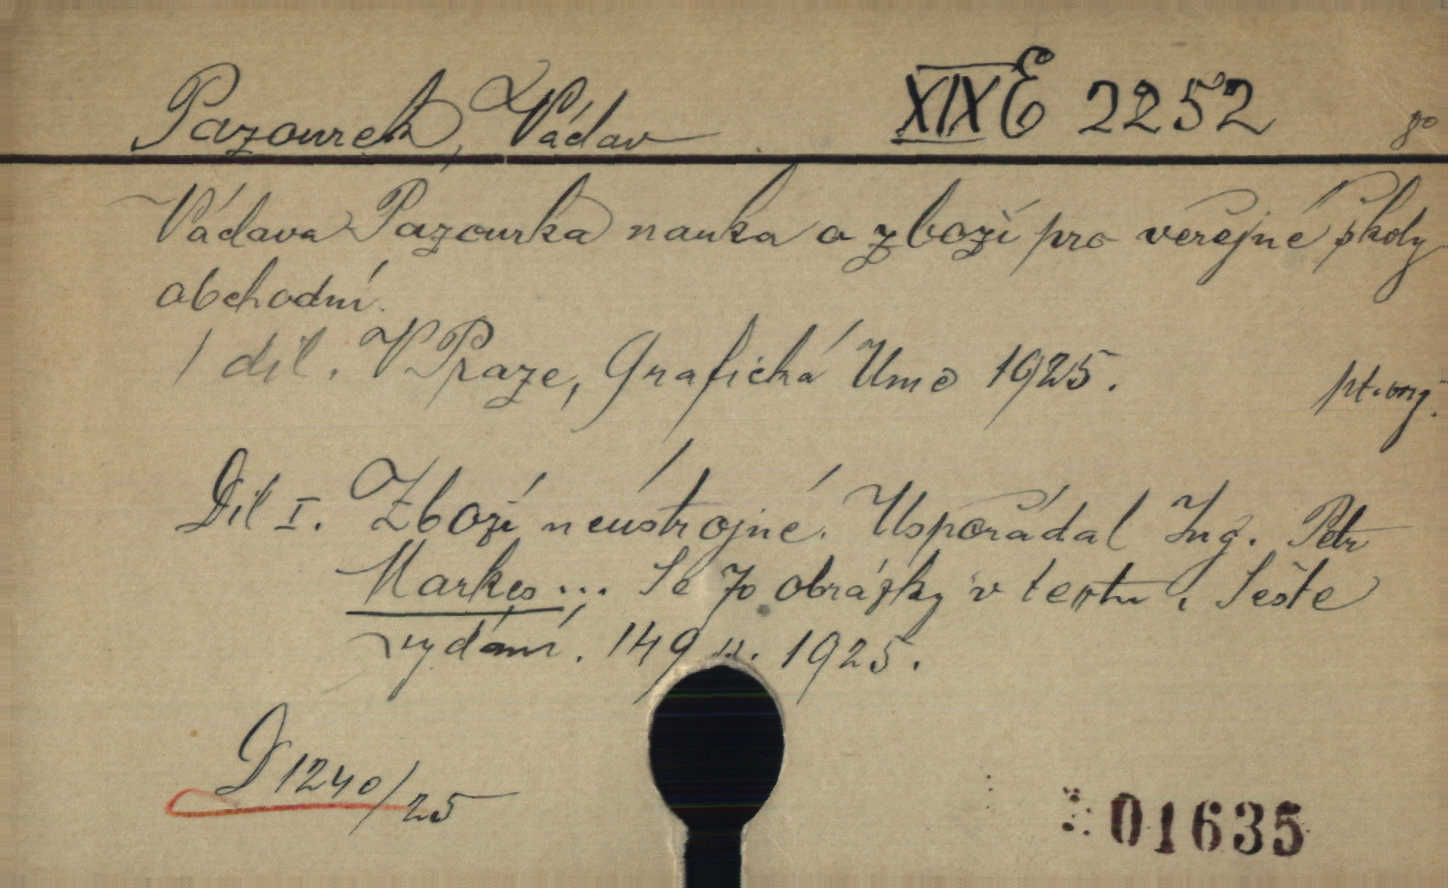 Pazourek, Václav XIX E 2252 8°
Václava Pazourka nauka o zboží pro veřejné školy
obchodní.
1 díl. V Praze, Grafická Unie 1925.
Díl I. Zboží neústrojné. Uspořádal Ing. Petr
Markes ... Se 70 obrázky v textu. Šesté
vydání. 149 s. 1925.
D 1240/25
01635